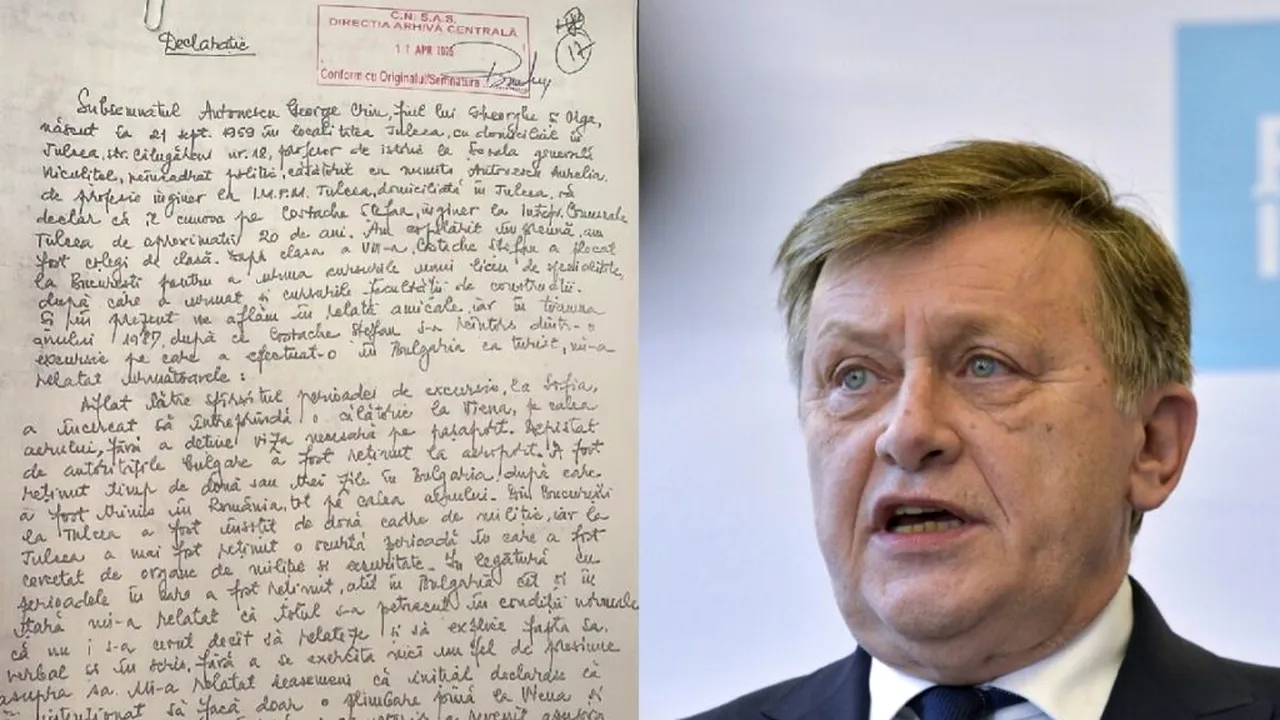 Declarație
C.N.S.A.S.
DIRECȚIA ARHIVĂ CENTRALĂ
11 APR 2025
Conform cu Originalul/Semnătura
17
Subsemnatul Antonescu George Crin, fiul lui Gheorghe și Olga,
născut la 21 sept. 1959 în localitatea Tulcea, cu domiciliul în
Tulcea, str. Călugăreni nr. 12, profesor de istorie la Școala generală
Niculițel, neîncadrat politic, căsătorit cu numita Antonescu Aurelia
de profesie inginer la I.M.P.M. Tulcea, domiciliată în Tulcea,
declar că îl cunosc pe Costache Ștefan, inginer la Intrepr. Comerciale
Tulcea de aproximativ 20 de ani. Am copilărit împreună, am
fost colegi de clasă. După clasa a VIII-a, Costache Ștefan a plecat
la București pentru a urma cursurile unui liceu de specialitate,
după care a urmat și cursurile facultății de construcții.
Și în prezent ne aflăm în relații amicale, iar în toamna
anului 1987, după ce Costache Ștefan s-a reîntors dintr-o
excursie pe care a efectuat-o în Bulgaria ca turist, mi-a
relatat următoarele:
Aflat către sfîrșitul perioadei de excursie, la Sofia,
a încercat să întreprindă o călătorie la Viena, pe calea
aerului, fără a deține viza necesară pe pașaport. Depistat
de autoritățile bulgare a fost reținut la aeroport. A fost
reținut timp de două sau trei zile în Bulgaria, după care
a fost trimis în România, tot pe calea aerului. Din București
la Tulcea a fost însoțit de două cadre de miliție, iar la
Tulcea a mai fost reținut o scurtă perioadă în care a fost
cercetat de organe de miliție și securitate. În legătură cu
perioadele în care a fost reținut, atît în Bulgaria cît și în
țară mi-a relatat că totul s-a petrecut în condiții normale
că nu i s-a cerut decît să relateze și să explice fapta sa,
verbal și în scris, fără a se exercita nici un fel de presiune
asupra sa. Mi-a relatat deasemeni că inițial declarase că
intenționat să facă doar o plimbare pînă la Viena și
a revenit asupra